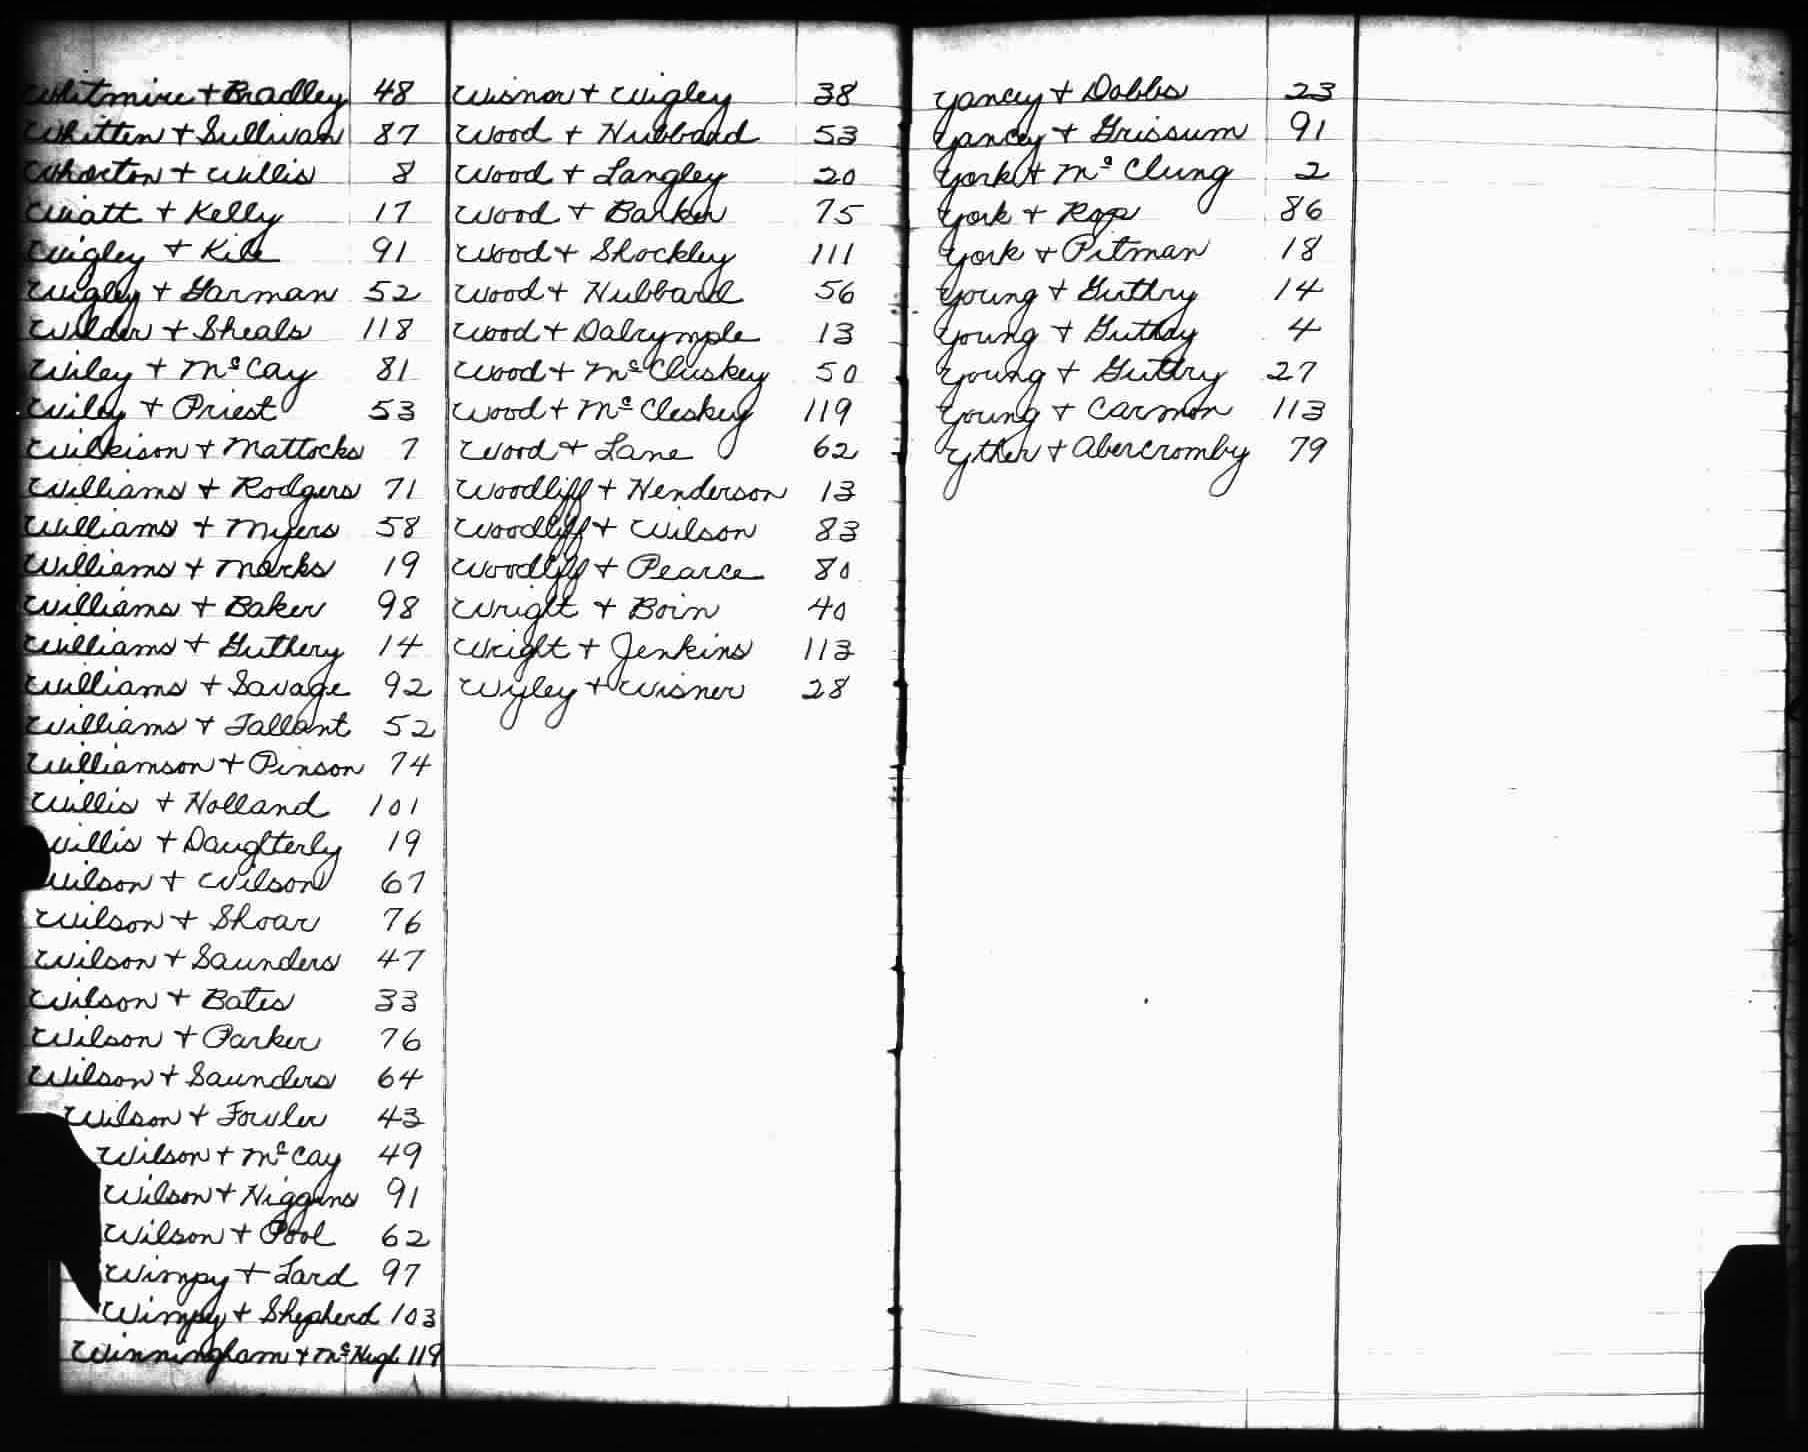 Whitmire + Bradley 48
Whitten + Sullivan 87
Whorton + Willis 8
Wiatt + Kelly 17
Wigley + Kile 91
Wigley + Garman 52
Wilder + Sheals 118
Wiley + McCay 81
Wiley + Priest 53
Wilkison + Mattocks 7
Williams + Rodgers 71
Williams + Myers 58
Williams + Marks 19
Williams + Baker 98
Williams + Guthery 14
Williams + Savage 92
Williams + Tallant 52
Williamson + Pinson 74
Willis + Holland 101
Willis + Daughterly 19
Wilson + Wilson 67
Wilson + Shoar 76
Wilson + Saunders 47
Wilson + Bates 33
Wilson + Parker 76
Wilson + Saunders 64
Wilson + Fowler 43
Wilson + McCay 49
Wilson + Higgins 91
Wilson + Pool 62
Wimpy + Lard 97
Wimpy + Shepherd 103
Winningham + McHugh 119
Wisnor + Wigley 38
Wood + Hubbard 53
Wood + Langley 20
Wood + Barker 75
Wood + Shockley 111
Wood + Hubbard 56
Wood + Dalrymple 13
Wood + McCluskey 50
Wood + McCleskey 119
Wood + Lane 62
Woodliff + Henderson 13
Woodliff + Wilson 83
Woodliff + Pearce 80
Wright + Boin 40
Wright + Jenkins 113
Wyley + Wisner 28
Yancey + Dobbs 23
Yancey + Grissum 91
York + McClung 2
York + 86
York + Pitman 18
Young + Guthry 14
Young + Guthry 4
Young + Guthry 27
Young + Carmon 113
Yther + Abercromby 79